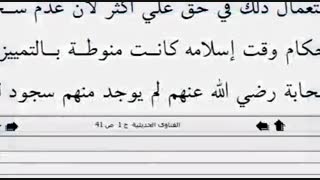 ـتعمال ذلك في حق علي أكثر لأن عدم سـجـ
حكام وقت إسلامه كانت منوطة بالتمييز
حابة رضي الله عنهم لم يوجد منهم سجود ل
الفتاوى الحديثية ج 1 ص 41